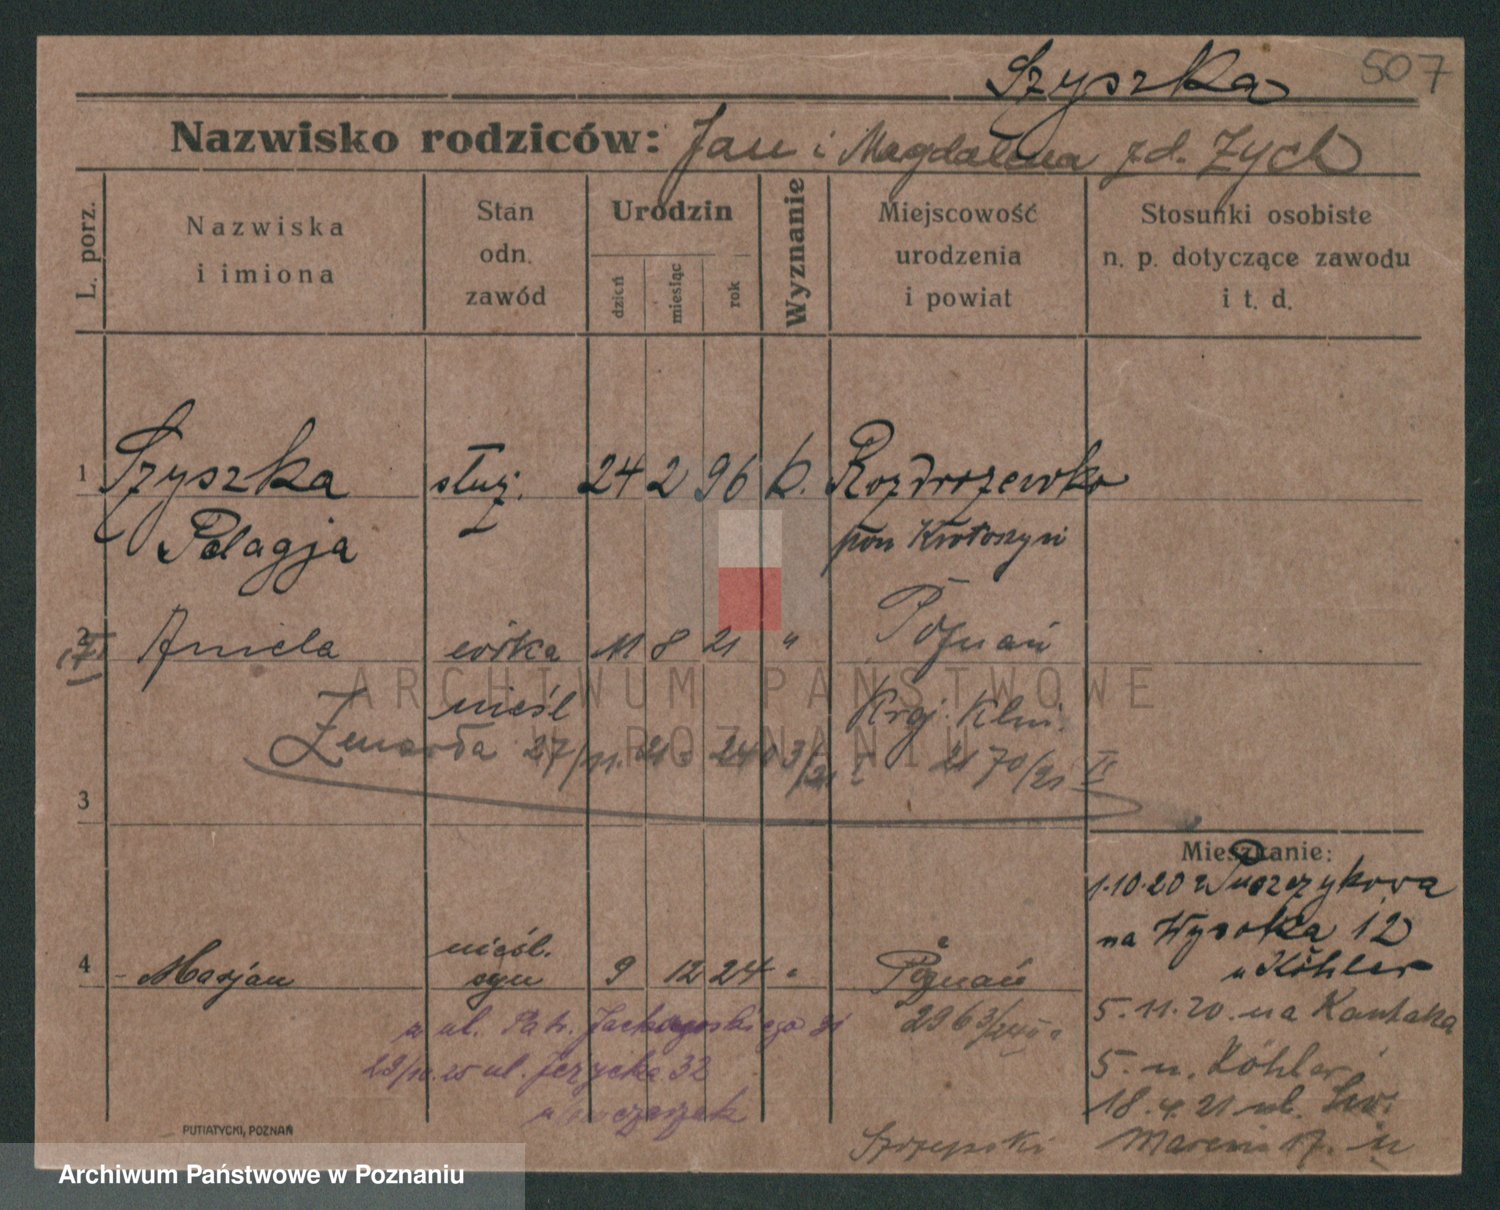 Szyszka 507
Nazwisko rodziców: Jan i Magdalena zd. Zych
L. porz.
Nazwiska
i imiona
Stan
odn.
zawód
Urodzin
dzień
miesiąc
rok
Wyznanie
Miejscowość
urodzenia
i powiat
Stosunki osobiste
n. p. dotyczące zawodu
i t. d.
1 Szyszka służ. 24 2 96 k. Rozdrożewko
Pelagja pow Krotoszyn
2 Aniela córka 11 8 21 " Poznań
nieśl Kroj. Klin.
Zmarła 27/11. 21 2170/21 II
3
Mieszkanie:
1.10.20 z Puszczykowa
na Wysoka 12
u Köhler
4 - Marjan nieśl. syn 9 12 24 " Poznań
2963/24
5.11.20. na Kantaka
5. u. Köhler
18.4.21 ul. Św.
Marcin 17.
z ul. Patr. Jackowskiego 31
29/10.25 ul. Jeżycka 32
PUTIATYCKI, POZNAŃ
ARCHIWUM PAŃSTWOWE
W POZNANIU
Archiwum Państwowe w Poznaniu